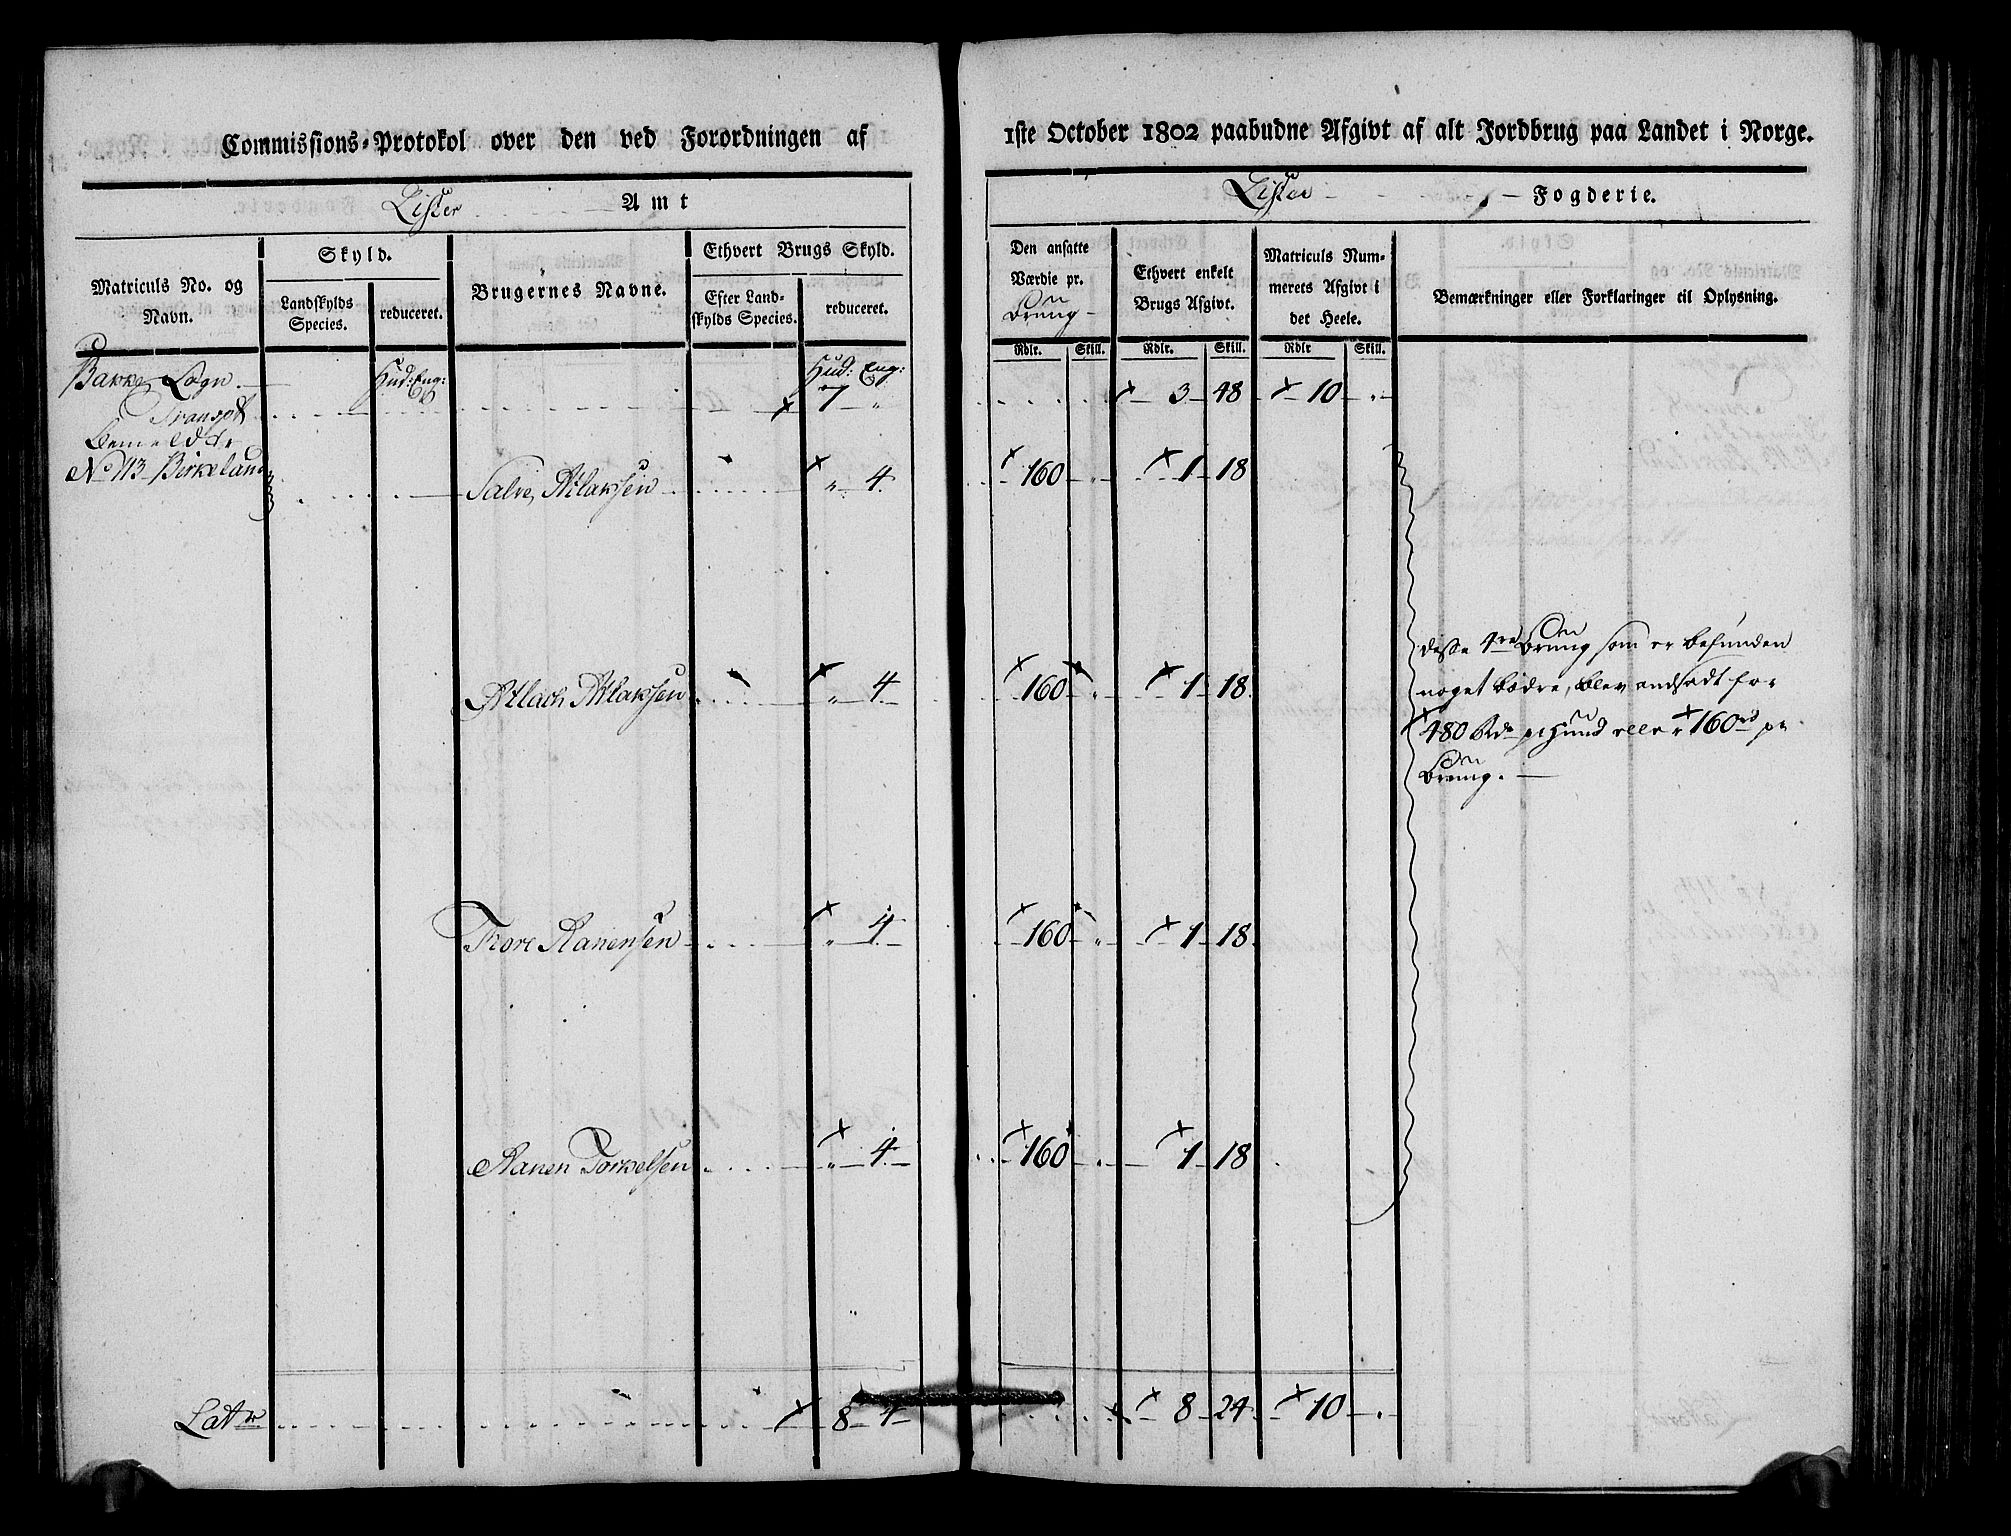 Commissions-Protokol over den ved Forordningen af
1ste October 1802 paabudne Afgivt af alt Jordbrug paa Landet i Norge.
Lister Amt
Lister Fogderie.
Matriculs No. og Navn.
Skyld.
Landskylds Species.
reduceret.
Brugernes Navne.
Ethvert Brugs Skyld.
Efter Landskylds Species.
reduceret.
Den ansatte Værdie pr.
Ethvert enkelt Brugs Afgivt.
Matriculs Nummerets Afgivt i det Heele.
Bemærkninger eller Forklaringer til Oplysning.
Rdlr. Skill. Rdlr. Skill. Rdlr Skill.
Bakke Sogn. Hud: Eng: Hud: Eng:
Transpt 7 " 3 48 10 "
Bemeldte
No 113 Birkeland
Salve Atlaksen " 4 160 " 1 18
Atlach Atlaksen " 4 160 " 1 18
Thore Aanensen " 4 160 " 1 18
Aanen Torkelsen " 4 160 " 1 18
disse 4re som er befunden
noget bedre, blev andsadt for
480 Rdr pr Hund eller 160 rd pr
Lat 8 4 8 24 10 "